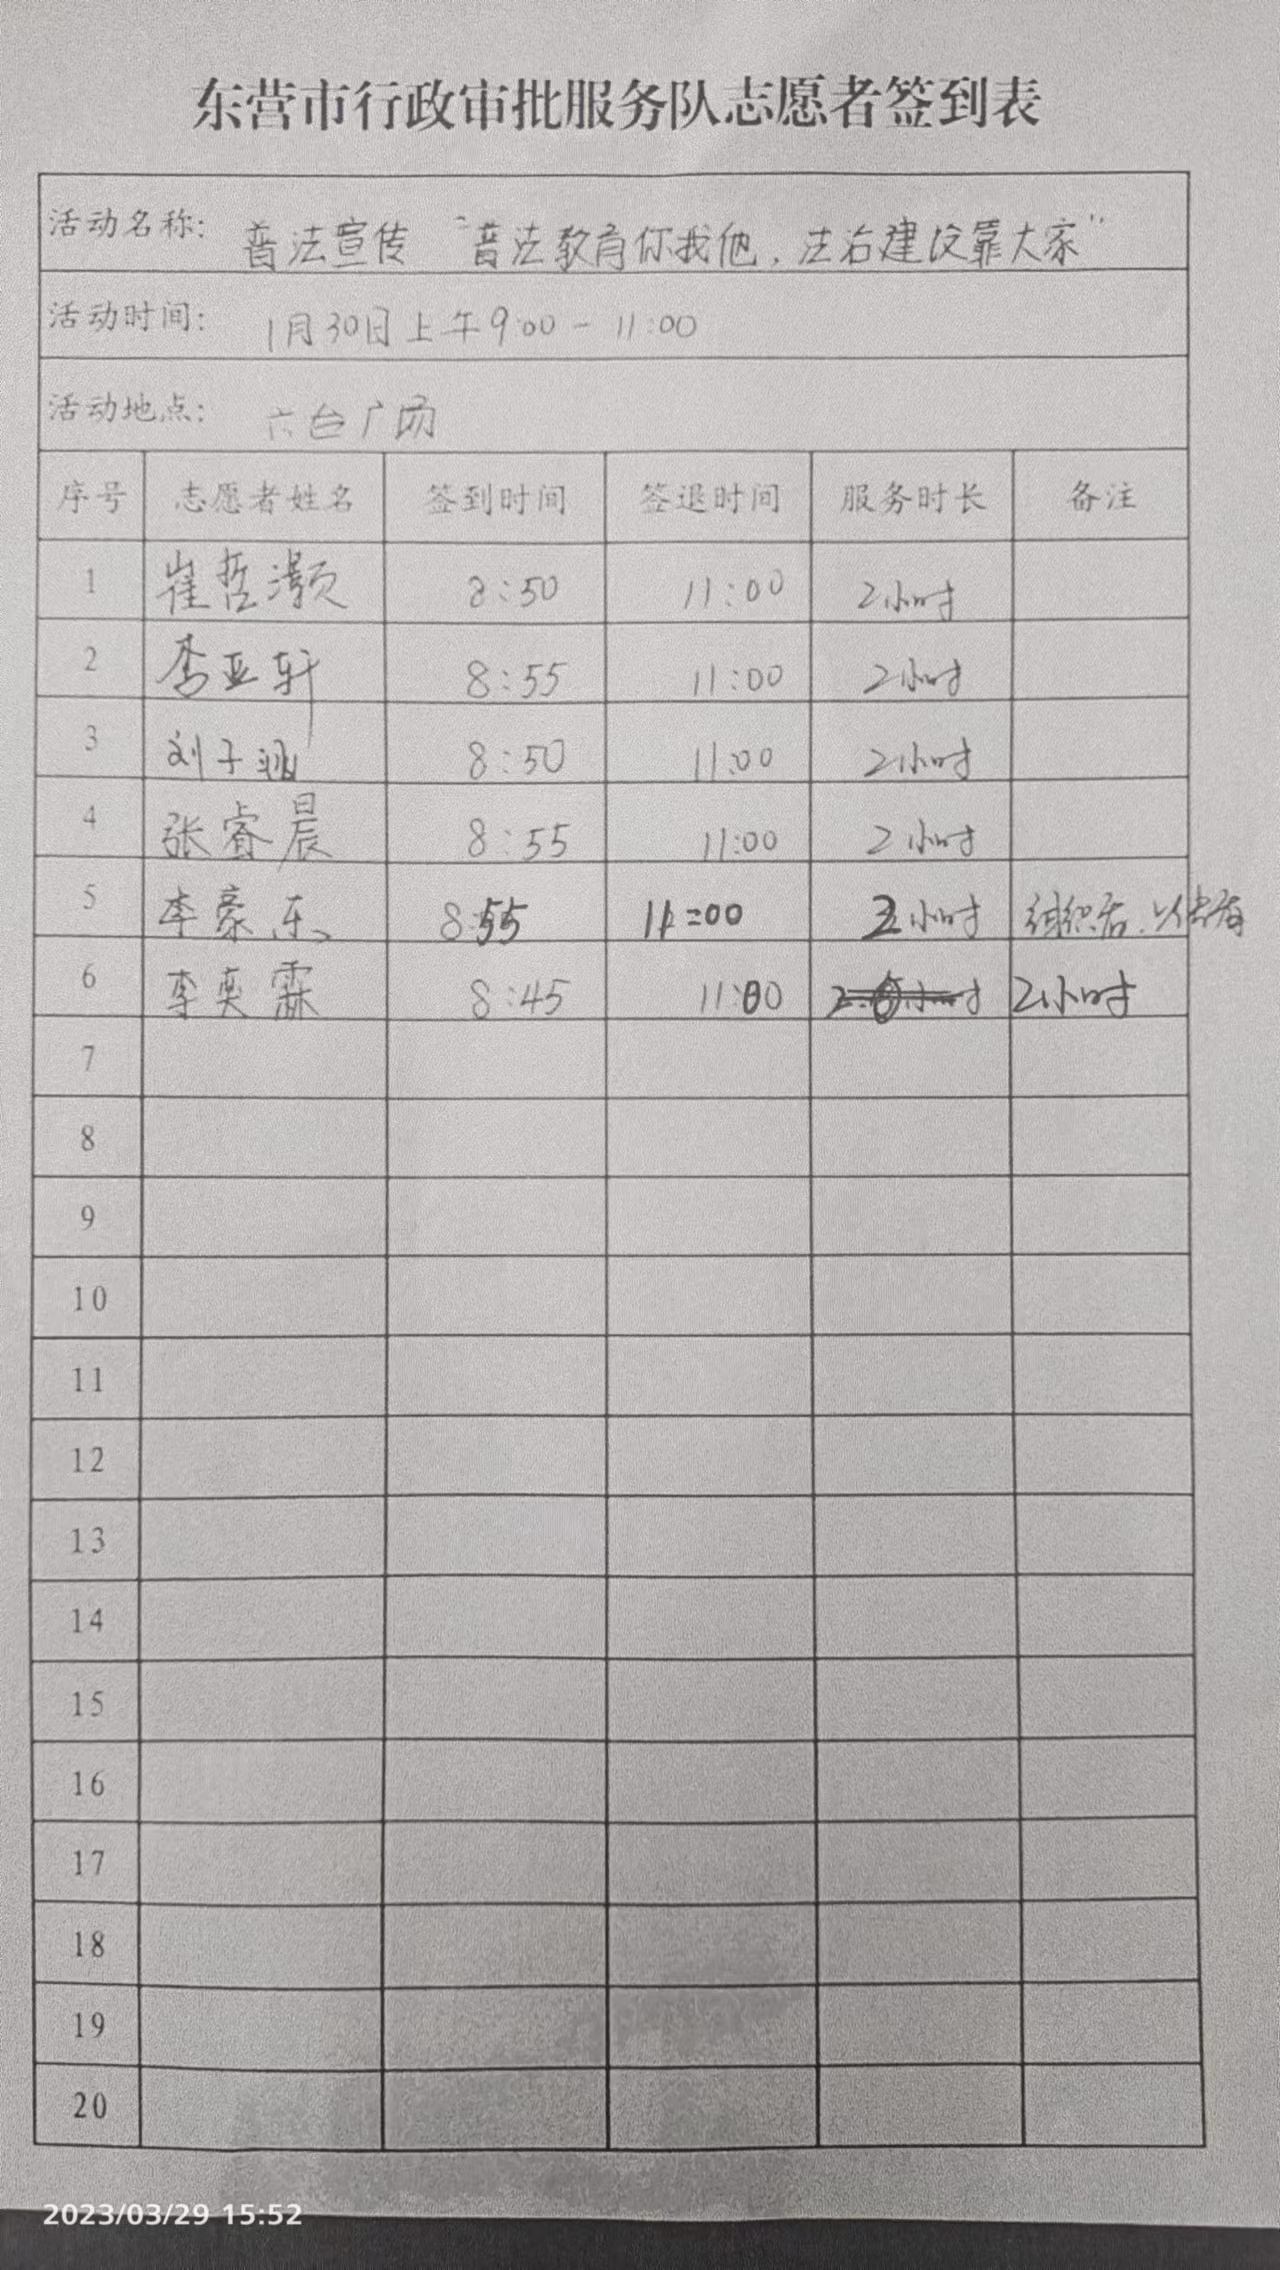 东营市行政审批服务队志愿者签到表
活动名称: 普法宣传 “普法教育你我他,法治建设靠大家”
活动时间: 1月30日上午9:00-11:00
活动地点: 六合广场
序号 志愿者姓名 签到时间 签退时间 服务时长 备注
1 崔哲灏 8:50 11:00 2小时
2 李亚轩 8:55 11:00 2小时
3 刘子 8:50 11:00 2小时
4 张睿晨 8:55 11:00 2小时
5 李豪东 8:55 11:00 2小时 组织者
6 李奕霖 8:45 11:00 2小时
7
8
9
10
11
12
13
14
15
16
17
18
19
20
2023/03/29 15:52